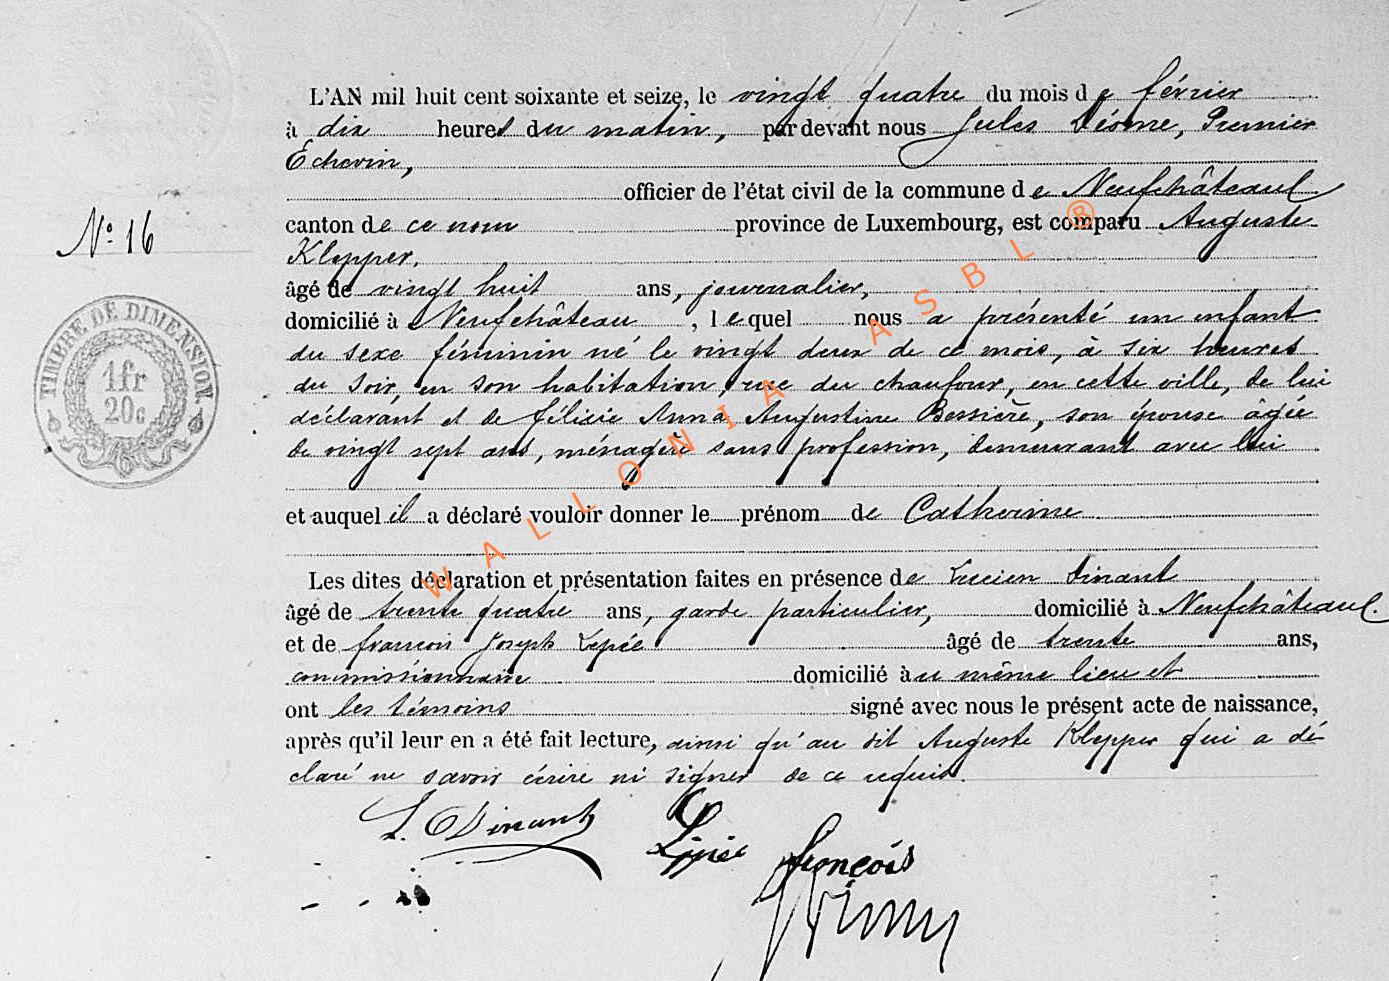 L'AN mil huit cent soixante et seize, le vingt quatre du mois de février
à dix heures du matin, par devant nous Jules Déome, Premier
Echevin,
officier de l'état civil de la commune de Neufchâteau
canton de ce nom province de Luxembourg, est comparu Auguste
Klepper,
âgé de vingt huit ans, journalier,
domicilié à Neufchâteau, lequel nous a présenté un enfant
du sexe féminin né le vingt deux de ce mois, à six heures
du soir, en son habitation, rue du chaufour, en cette ville, de lui
déclarant et de félicie Anna Augustine Bessière, son épouse âgée
de vingt sept ans, ménagère sans profession, demeurant avec lui
et auquel il a déclaré vouloir donner le prénom de Catherine
Les dites déclaration et présentation faites en présence de Lucien Dinant
âgé de trente quatre ans, garde particulier, domicilié à Neufchâteau.
et de françois Joseph Lepée âgé de trente ans,
commissionnaire domicilié au même lieu et
ont les témoins signé avec nous le présent acte de naissance,
après qu'il leur en a été fait lecture, ainsi qu'au dit Auguste Klepper qui a dé
claré ne savoir écrire ni signer de ce requis.
N° 16
TIMBRE DE DIMENSION.
1fr
20c
L. Dinant
françois
WALLONIA ASBL ®